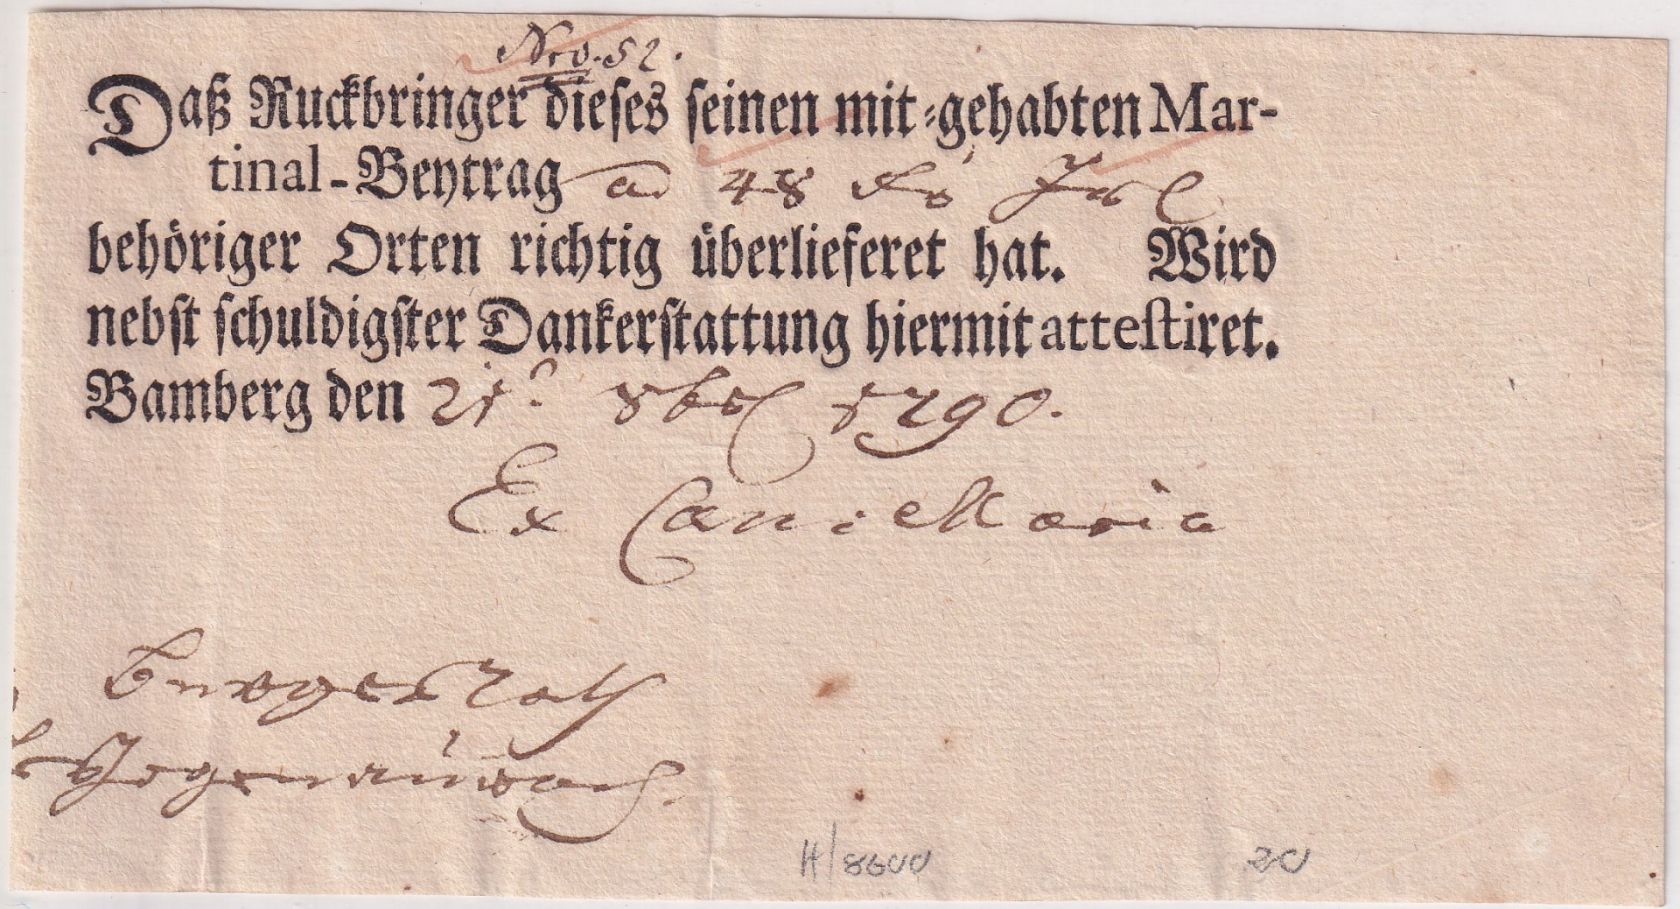 Nro. 52.
Daß Ruckbringer dieses seinen mit-gehabten Mar-
tinal-Beytrag ad 48 
behöriger Orten richtig überlieferet hat. Wird
nebst schuldigster Dankerstattung hiermit attestiret.
Bamberg den 21t. 8br 1790.
Ex Cam: Maria
H/8600
20